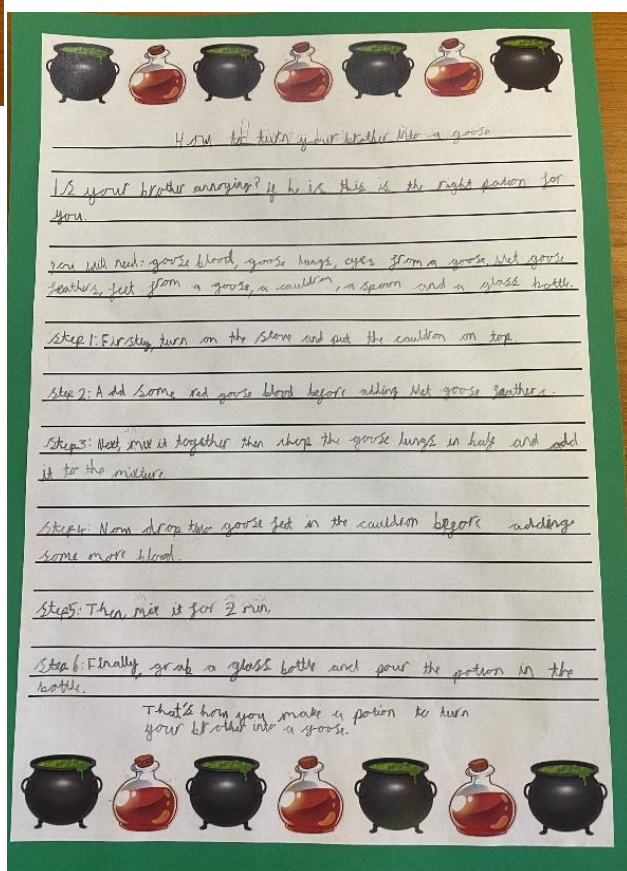 How to turn your brother into a goose
Is your brother annoying? If he is this is the right potion for
you.
you will need: goose blood, goose lungs, eyes from a goose, wet goose
feathers, feet from a goose, a cauldron, a spoon and a glass bottle.
Step 1: Firstly, turn on the stove and put the cauldron on top.
Step 2: Add some red goose blood before adding wet goose feathers.
Step 3: Next, mix it together then chop the goose lungs in half and add
it to the mixture.
Step 4: Now drop two goose feet in the cauldron before adding
some more blood.
Step 5: Then, mix it for 2 min,
Step 6: Finally, grab a glass bottle and pour the potion in the
bottle.
That's how you make a potion to turn
your brother into a goose.